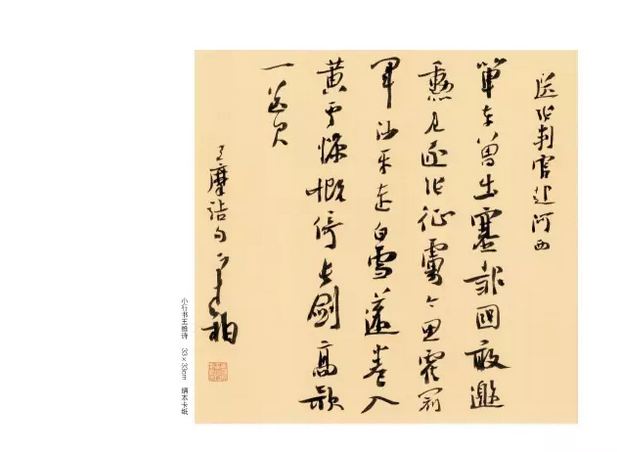 送张判官赴河西
单车曾出塞报国敢邀
勲见逐张征虏今思霍冠
军沙平连白雪蓬卷入
黄云慷慨倚长剑高歌
一送君
王摩诘句
小行书王维诗 33×33cm 绢本卡纸